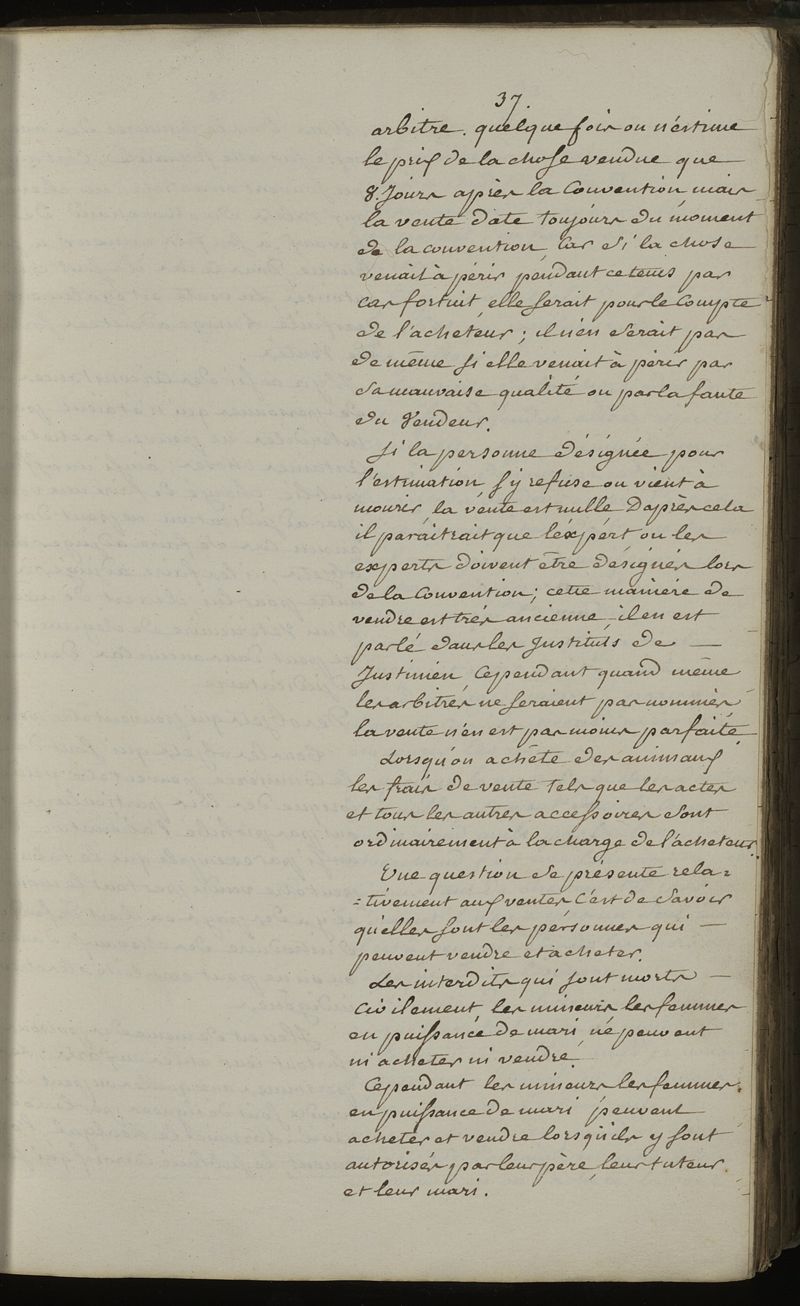 37.
arbitre. quelque fois on n'estime
le prix de la chose vendue que
8. Jours après la Convention mais
la vente date toujours du moment
de la convention, Car si la chose
venait à périr pendant ce tems par
cas fortuit elle serait pour le Compte
de l'acheteur ; il n'en serait pas
de même si elle venait à périr par
sa mauvaise qualité ou par la faute
du Vendeur.
Si la personne désignée pour
l'estimation s'y refuse ou vient à
mourir, la vente est nulle D'après cela
il paraitrait que l'éxpért ou les
experts doivent être désignés lors
de la Convention ; cette manière de
vendre est très ancienne, il en est
parlé dans les Instituts de —
Justinien, Cependant quand même
les arbitres ne seraient pas nommés
la vente n'en est pas moins parfaite.
Lorsqu'on achète des animaux
les frais de vente tels que les actes
et tous les autres accessoires sont
ordinairement à la charge de l'acheteur.
Une question se présente rela=
=tivement aux ventes C'est de savoir
quelles sont les personnes qui —
peuvent vendre et acheter.
Les interdits qui sont morts —
Civilement, les mineurs les femmes
en puissance de mari, ne peuvent
ni acheter ni vendre.
Cependant les mineurs les femmes
en puissance de mari peuvent
acheter et vendre lorsqu'ils y sont
autorisés par leur père, leur tuteur,
et leur mari.